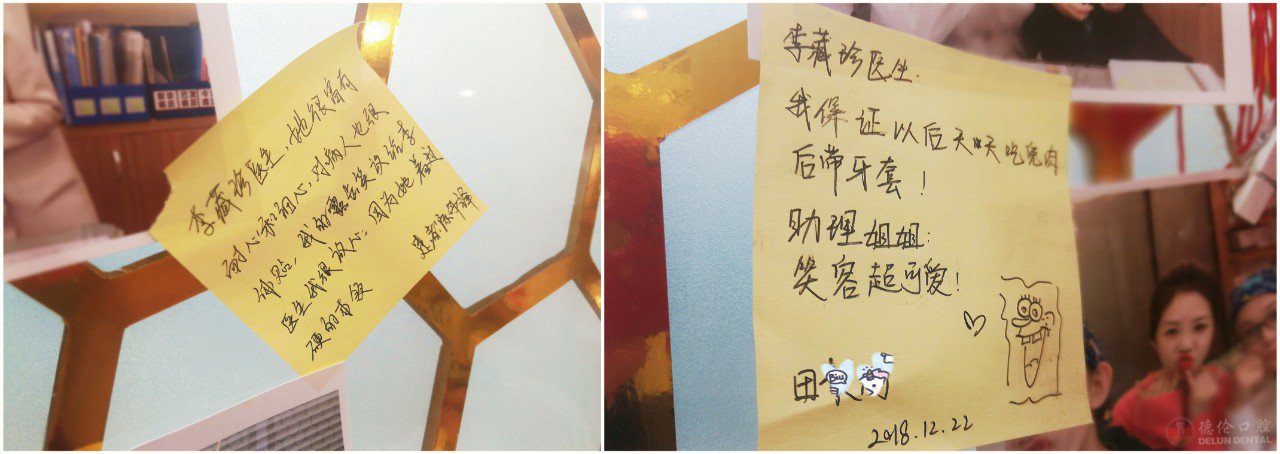 李藏珍医生，她很富有
耐心和细心，对病人也很
体贴，我的露齿笑交给李
医生我很放心，因为她有过
硬的本领
患者陈
李藏珍医生：
我保证以后天天吃兔肉
后带牙套！
助理姐姐：
笑容超可爱！
田
2018.12.22
德伦口腔
DELUN DENTAL